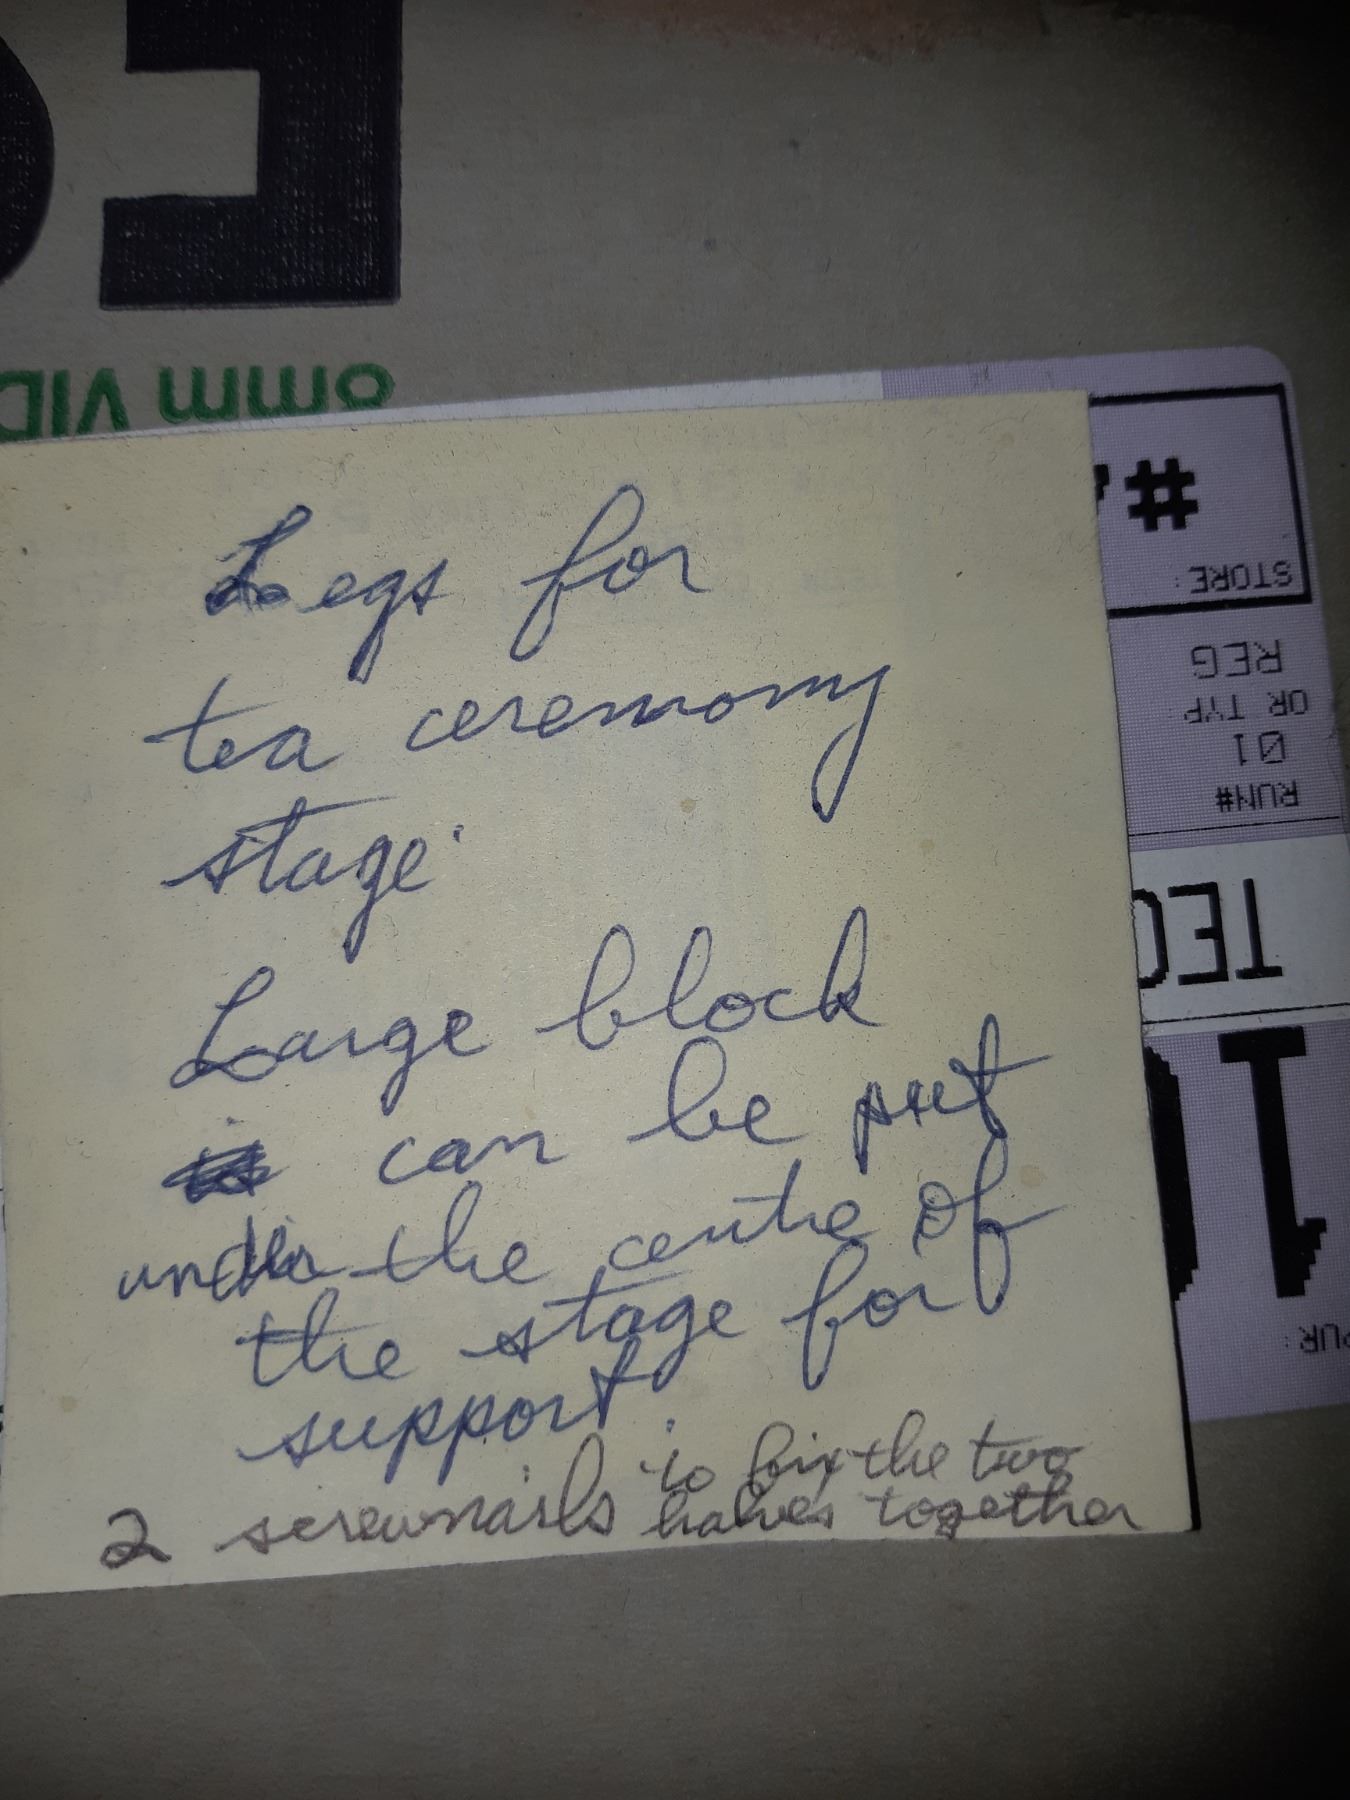 8mm VID
#
STORE:
REG
OR TYP
01
RUN#
TEC
10
PUR:
Legs for
tea ceremony
stage.
Large block
can be put
under the centre of
the stage for
support.
2 screwnails to fix the two
halves together